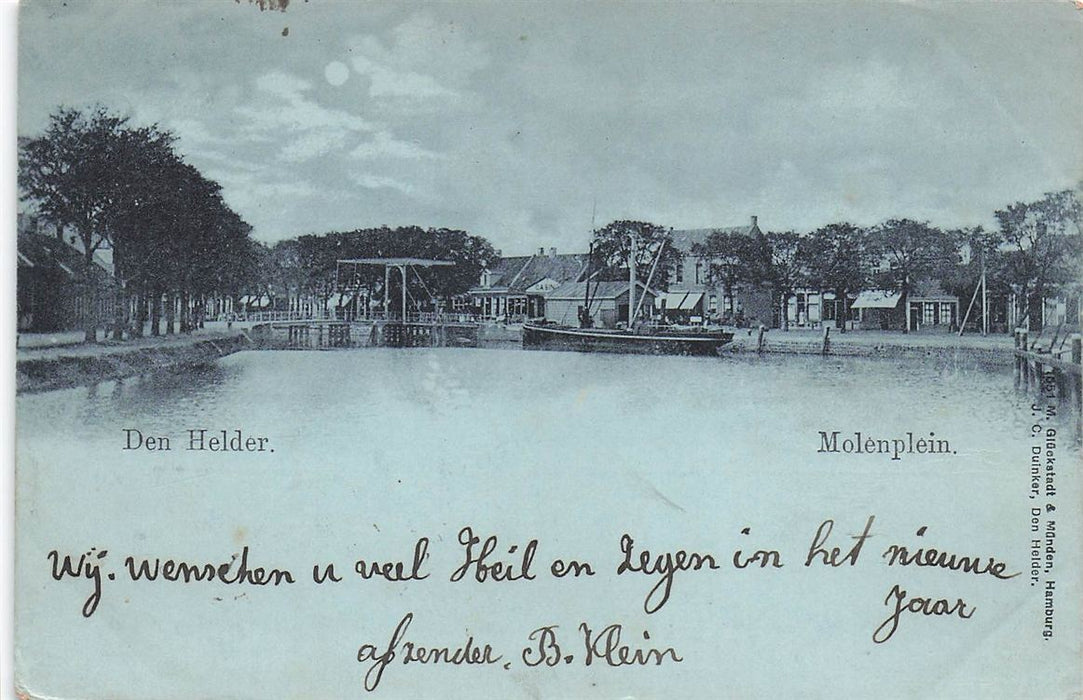 Den Helder.
Molenplein.
1051 M. Glückstadt & Münden, Hamburg.
J. C. Duinker, Den Helder.
Wij. wenschen u veel Heil en Zegen in het nieuwe
Jaar
afzender. B. Klein